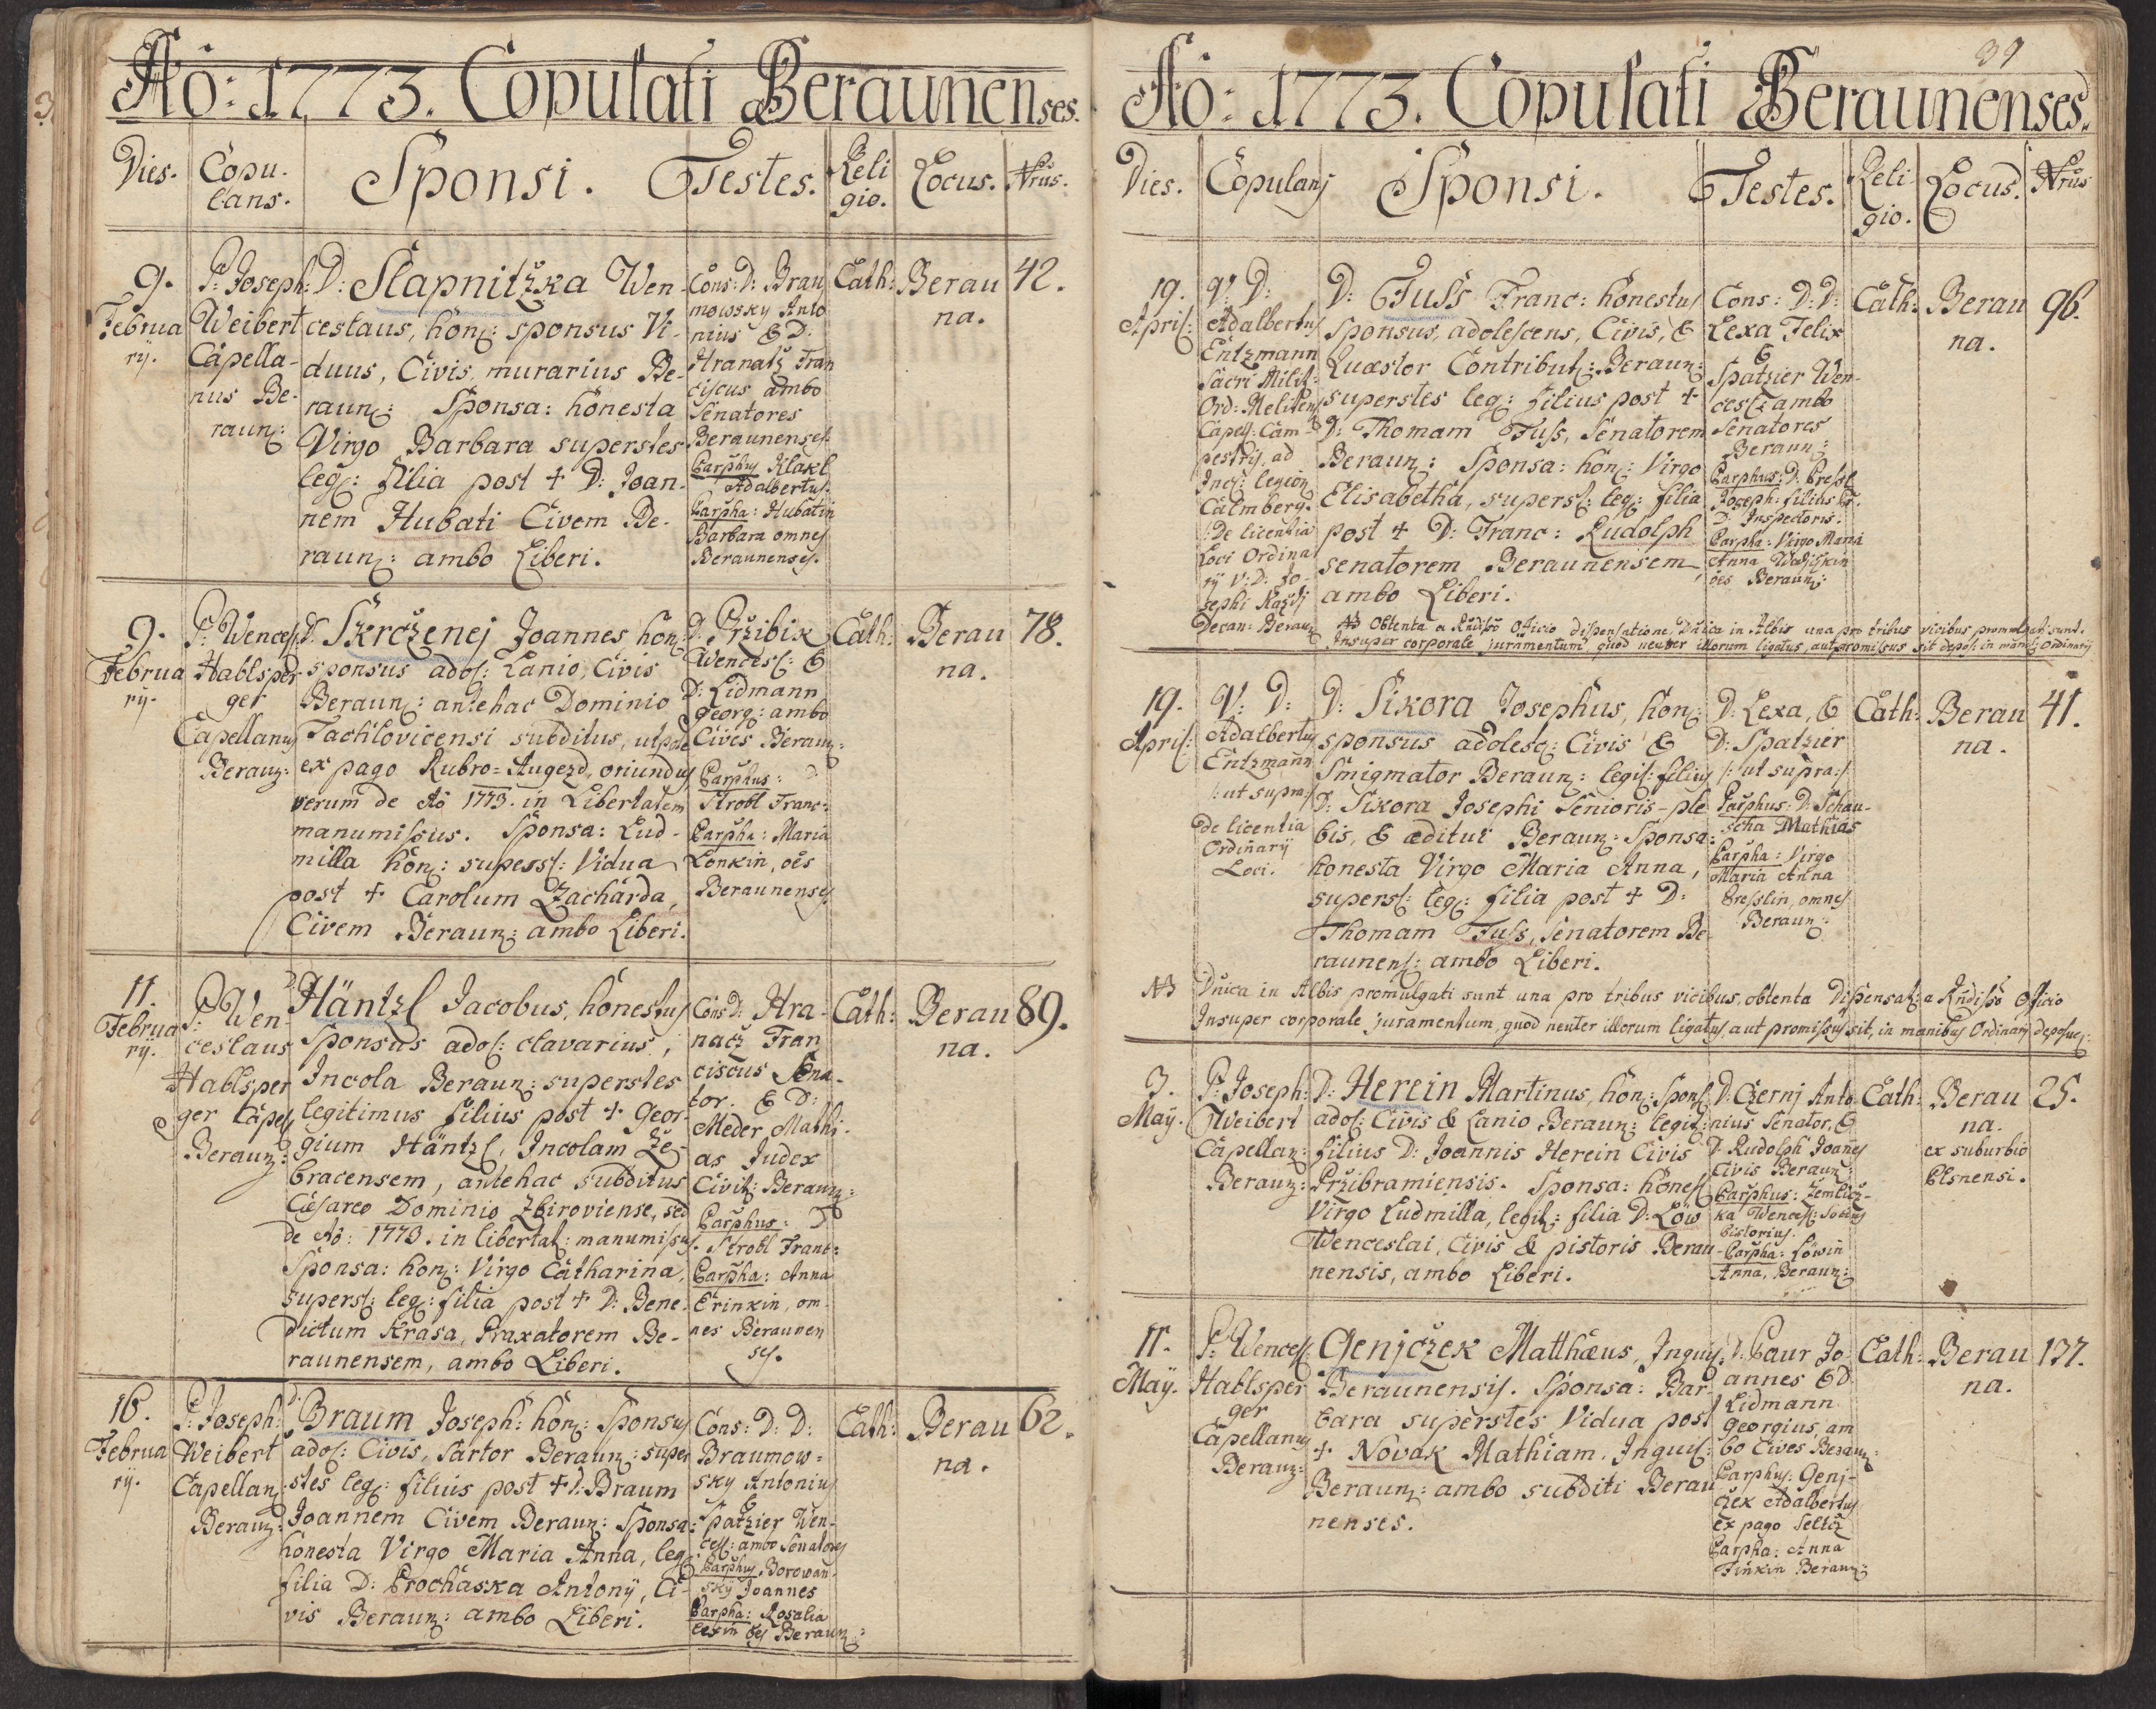 Aö: 1773. Copulati Beraunenses.
Dies.
Copu-
lans.
Sponsi.
Testes.
Reli
gio.
Locus.
Nrus.
9.
Februa
rij.
P: Joseph:
Weibert
Capella-
nus Be-
raun:
D: Slapnitžka Wen-
ceslaus, hon: sponsus Vi-
duus, Civis, murarius Be-
raun: Sponsa: honesta
Virgo Barbara superstes
leg: filia post + D: Joan-
nem Hubati Civem Be-
raun: ambo Liberi.
Cons: D: Bran
mowsky Anto
nius & D:
Hranatž Fran
ciscus ambo
Senatores
Beraunenses.
Parphus Klakl
Adalbertus.
Parpha: Hubatin
Barbara omnes
Beraunenses.
Cath:
Berau
na.
42.
9.
Februa
rij.
P: Wences:
Hablsper
ger
Capellanus
Beraun:
D: Skrčženej Joannes hon:
sponsus adol: Lanio, Civis
Beraun: antehac Dominio
Tachlovicensi subditus, utpote
ex pago Rubro-Augezd, oriundus
verum de Aö 1773. in Libertatem
manumissus. Sponsa: Lud-
milla hon: superst: Vidua
post + Carolum Zacharda,
Civem Beraun: ambo Liberi.
D: Pržibik
Wencesl: &
D: Lidmann
Georg: ambo
Cives Beraun:
Parphus: D
Strobl Franc:
Parpha: Maria
Lonkin, oes
Beraunenses
Cath:
Berau
na.
78.
11.
Februa
rij.
P: Wen-
ceslaus
Hablsper
ger Capell
Beraun:
D: Häntzl Jacobus, honestus
Sponsus adol: clavarius,
Incola Beraun: superstes
legitimus filius post + Geor-
gium Häntzl, Incolam Že-
bracensem, antehac subditus
Cæsareo Dominio Zbiroviense, sed
de Aö: 1773. in libertat: manumissus.
Sponsa: hon: Virgo Catharina,
superst: leg: filia post + D: Bene-
dictum Krasa, Praxatorem Be-
raunensem, ambo Liberi.
Cons D: Hra-
nacž Fran
ciscus Sena-
tor. & D:
Meder Mathi-
as Judex
Civit: Beraun:
Parphus: D
Strobl Franc:
Parpha: Anna
Erinkin, om-
nes Beraunen
ses.
Cath:
Berau
na.
89.
16.
Februa
rij.
P: Joseph:
Weibert
Capellan:
Beraun:
D: Braum Joseph: hon: Sponsus
adol: Civis, Sartor Beraun: super
stes leg: filius post + D: Braum
Joannem Civem Beraun: Sponsa:
honesta Virgo Maria Anna, leg:
filia D: Prochaska Antonij, Ci-
vis Beraun: ambo Liberi.
Cons: D: D:
Braumow-
sky Antonius
&
Spatzier Wen-
cesl: ambo Senatores
Parphus Borowan-
sky Joannes
Parpha: Rosalia
oes Beraun:
Cath:
Berau
na.
62.
39
Aö: 1773. Copulati Beraunenses.
Dies.
Copulans
Sponsi.
Testes.
Reli
gio.
Locus.
Nrus
19.
April:
V: D:
Adalbertus
Entzmann
Sacri Milit:
Ord: Meliten
Capell: Cam-
pestris, ad
Incl: legion
Calmberg.
/: De licentia
Loci Ordina
rij V: D: Jo-
sephi Každj
Decan: Beraun
D: Fuss Franc: honestus
Sponsus, adolescens, Civis, &
Quæstor Contribut: Beraun:
superstes leg: filius post +
D: Thomam Fuss, Senatorem
Beraun: Sponsa: hon: Virgo
Elisabetha, superst: leg: filia
post + D: Franc: Rudolph
senatorem Beraunensem,
ambo Liberi.
Cons: D: D:
Lexa Felix
&
Spatzier Wen-
cesl: ambo
Senatores
Beraun:
Parphus: D: Pressl
Joseph: filius
D: Inspectoris.
Parpha: Virgo Maria
Anna
oes Beraun:
Cath:
Berau
na.
96.
NB Obtenta a Rudissö Officio dispensatione, Dnica in Albis una pro tribus vicibus promulgati sunt.
Insuper corporale juramentum quod neuter illorum ligatus, aut promissus sit depos: in man: Ordinarij
19.
April:
V: D:
Adalbertus
Entzmann
/: ut supra:/
De licentia
Ordinarij
Loci.
D: Sikora Josephus, hon:
sponsus adolesc: Civis &
Smigmator Beraun: legit: filius
D: Sikora Josephi Senioris-ple
bis, & æditui Beraun: Sponsa:
honesta Virgo Maria Anna,
superst: leg: filia post + D:
Thomam Fuss, Senatorem Be-
raunens: ambo Liberi.
D: Lexa, &
D: Spatzier
/: ut supra:/
Parphus: D: Schau-
scha Mathias
Parpha: Virgo
Maria Anna
Presslin, omnes
Beraun:
Cath:
Berau
na.
41.
NB Dnica in Albis promulgati sunt una pro tribus vicibus, obtenta Dispensat: a Rudissö Officio
Insuper corporale juramentum, quod neuter illorum ligatus, aut promissus sit, in manibus Ordinarij deposuer:
3.
May.
P: Joseph:
Weibert
Capellan:
Beraun:
D: Herein Martinus, hon: Spons
adol: Civis & Lanio, Beraun: legit:
filius D: Joannis Herein Civis
Pržibramiensis. Sponsa: honest
Virgo Ludmilla, legit: filia D: Löw
Wenceslai, Civis & pistoris Berau-
nensis, ambo Liberi.
D: Czernj Anto-
nius Senator, &
D: Rudolph Joanes
Civis Beraun:
Parphus: Žemlicž-
ka Wencesl: Sodus
Pistorius.
Parpha: Löwin
Anna, Beraun:
Cath:
Berau
na.
ex suburbio
Plsnensi.
25.
11.
May.
P: Wences:
Hablsper
ger
Capellanus
Beraun:
Genjčzek Matthæus, Inquis:
Beraunensis. Sponsa: Bar-
bara superstes Vidua post
+ Novak Mathiam, Inquil:
Beraun: ambo subditi Berau
nenses.
D: Paur Jo-
annes & D
Lidmann
Georgius, am
bo Cives Beraun:
Parphus: Genj-
čzek Adalbertus
ex pago Seltcž
Parpha: Anna
Finkin Beraun:
Cath:
Berau
na.
137.